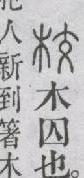 校木囚也
人新到箸木